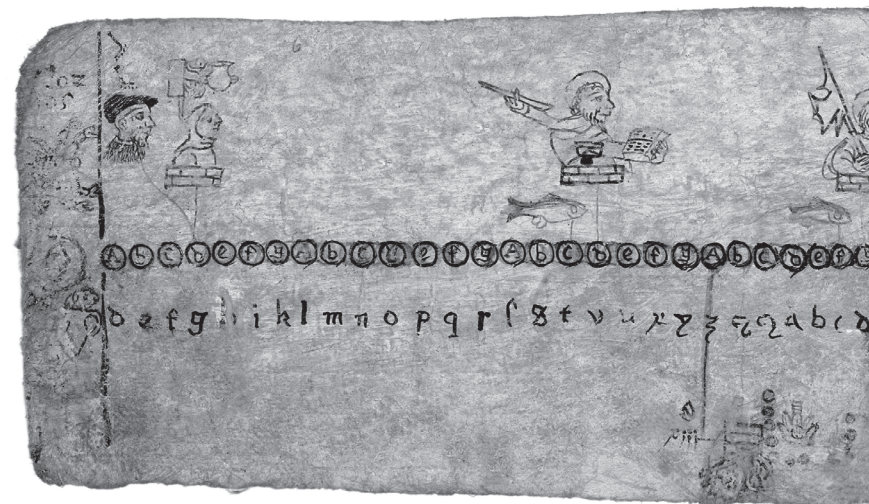 A b c d e f g A b c d e f g A b c d e f g A b c d e f g
d e f g h i k l m n o p q r ſ s t v u x y z A b c d